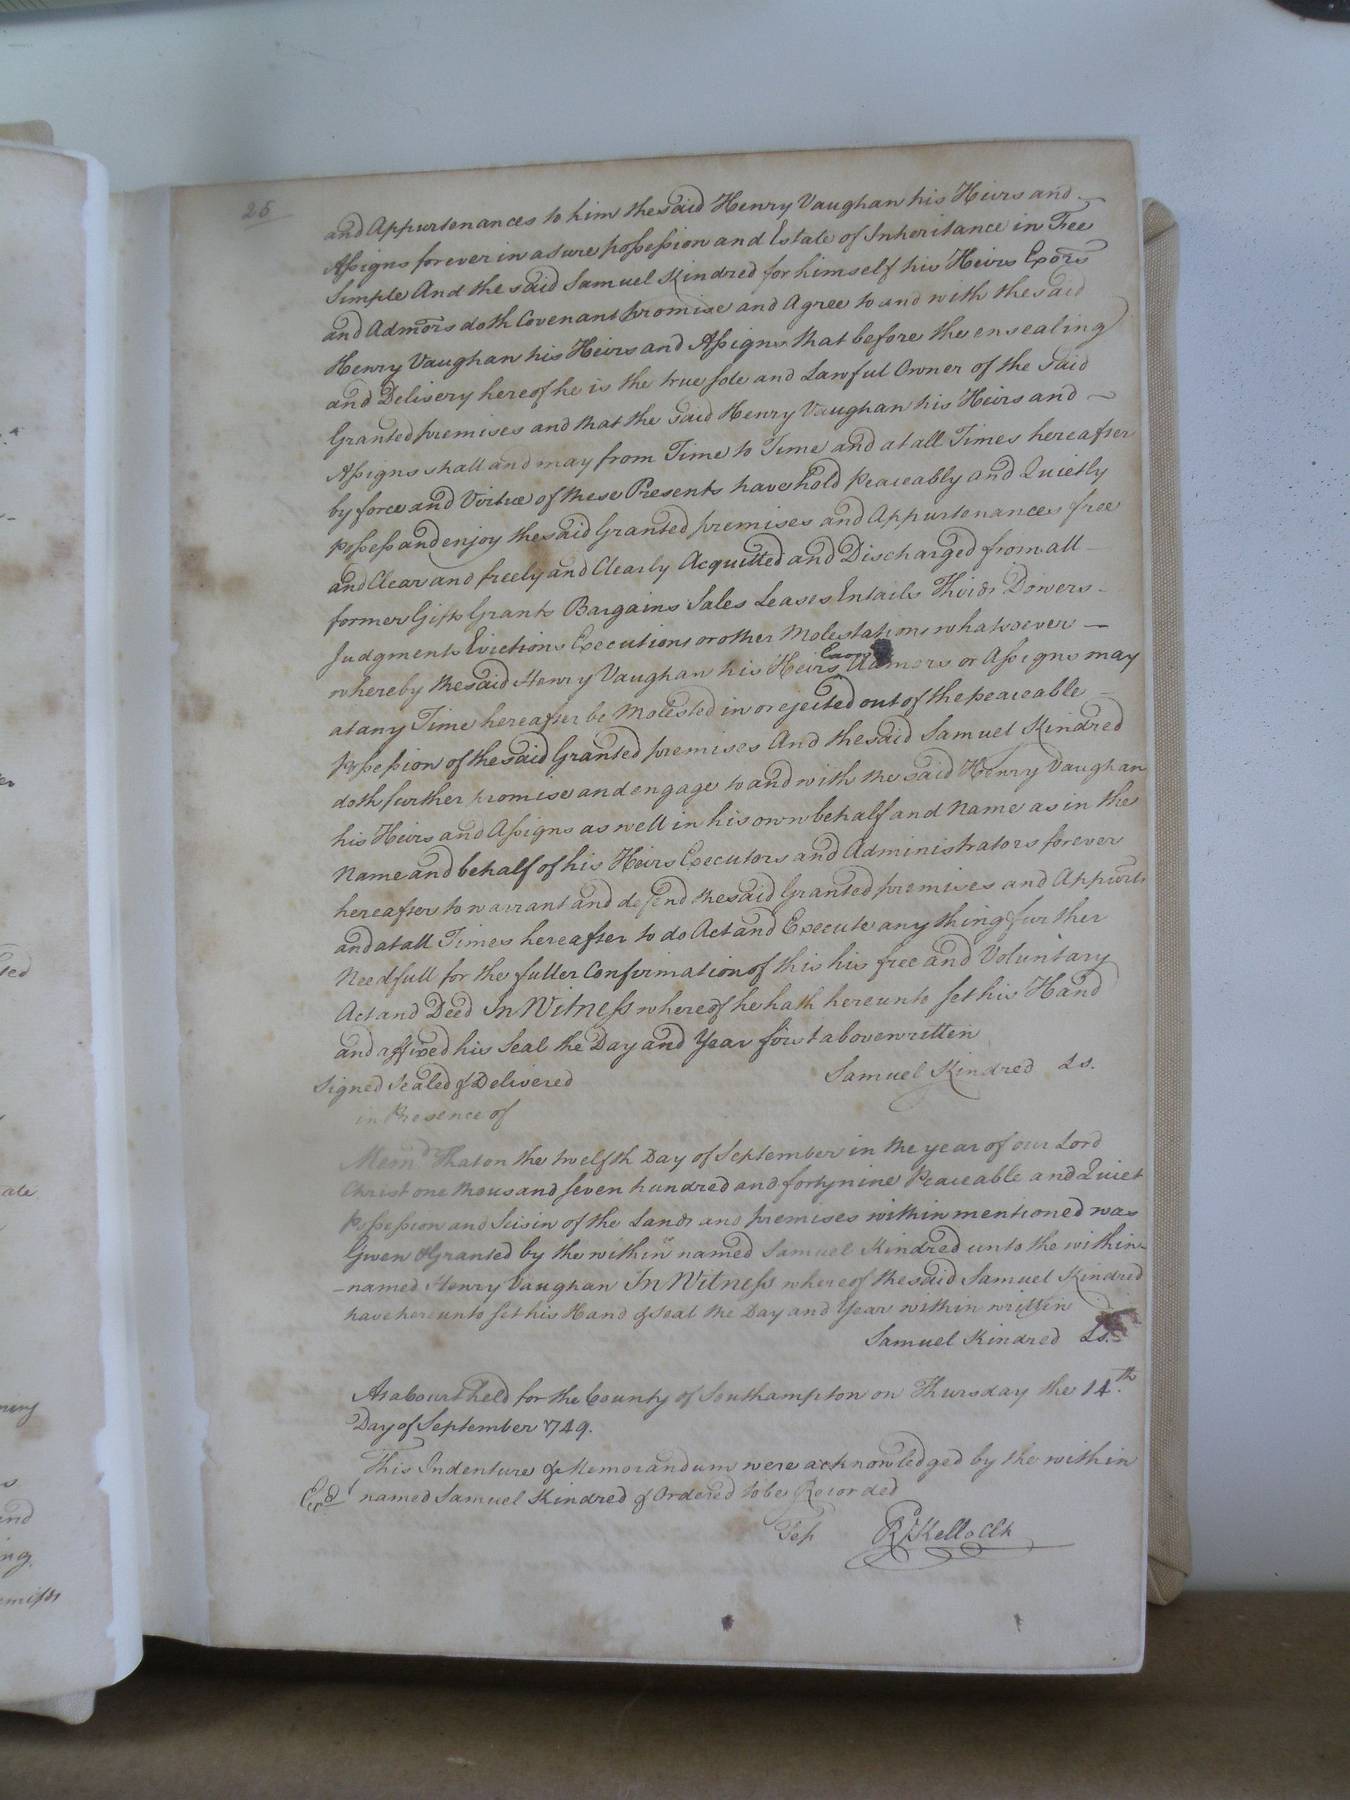 25
and Appurtenances to him the said Henry Vaughan his Heirs and
Assigns forever in a sure possession and Estate of Inheritance in Fee
Simple And the said Samuel Kindred for himself his Heirs Exors
and Admors doth Covenant promise and Agree to and with the said
Henry Vaughan his Heirs and Assigns that before the ensealing
and Delivery hereof he is the true sole and Lawful Owner of the said
Granted premises and that the said Henry Vaughan his Heirs and
Assigns shall and may from Time to Time and at all Times hereafter
by force and Virtue of these Presents have hold peaceably and Quietly
possess and enjoy the said Granted premises and Appurtenances free
and Clear and freely and Clearly Acquitted and Discharged from all
former Gifts Grants Bargains Sales Leases Entails Thirds Dowers
Judgments Evictions Executions or other Molestations whatsoever
whereby the said Henry Vaughan his Heirs Exors Admors or Assigns may
at any Time hereafter be Molested in or ejected out of the peaceable
possession of the said Granted premises And the said Samuel Kindred
doth further promise and engage to and with the said Henry Vaughan
his Heirs and Assigns as well in his own behalf and Name as in the
Name and behalf of his Heirs Executors and Administrators forever
hereafter to warrant and defend the said Granted premises and Appurts
and at all Times hereafter to do Act and Execute any thing further
Needfull for the fuller Confirmation of this his free and Voluntary
Act and Deed In Witness whereof he hath hereunto set his Hand
and affixed his Seal the Day and Year first above written
Samuel Kindred Ls.
Signed Sealed & Delivered
in Presence of
Memd. That on the twelfth Day of September in the year of our Lord
Christ one thousand seven hundred and forty nine Peaceable and Quiet
Possession and Seisin of the Lands and premises within mentioned was
Given & Granted by the within named Samuel Kindred unto the within
named Henry Vaughan In Witness whereof the said Samuel Kindred
have hereunto set his Hand & Seal the Day and Year within written
Samuel Kindred Ls.
At a Court held for the County of Southampton on Thursday the 14th.
Day of September 1749.
This Indenture & Memorandum were acknowledged by the within
Exd named Samuel Kindred & Ordered to be Recorded
Test Rd Kello Clk